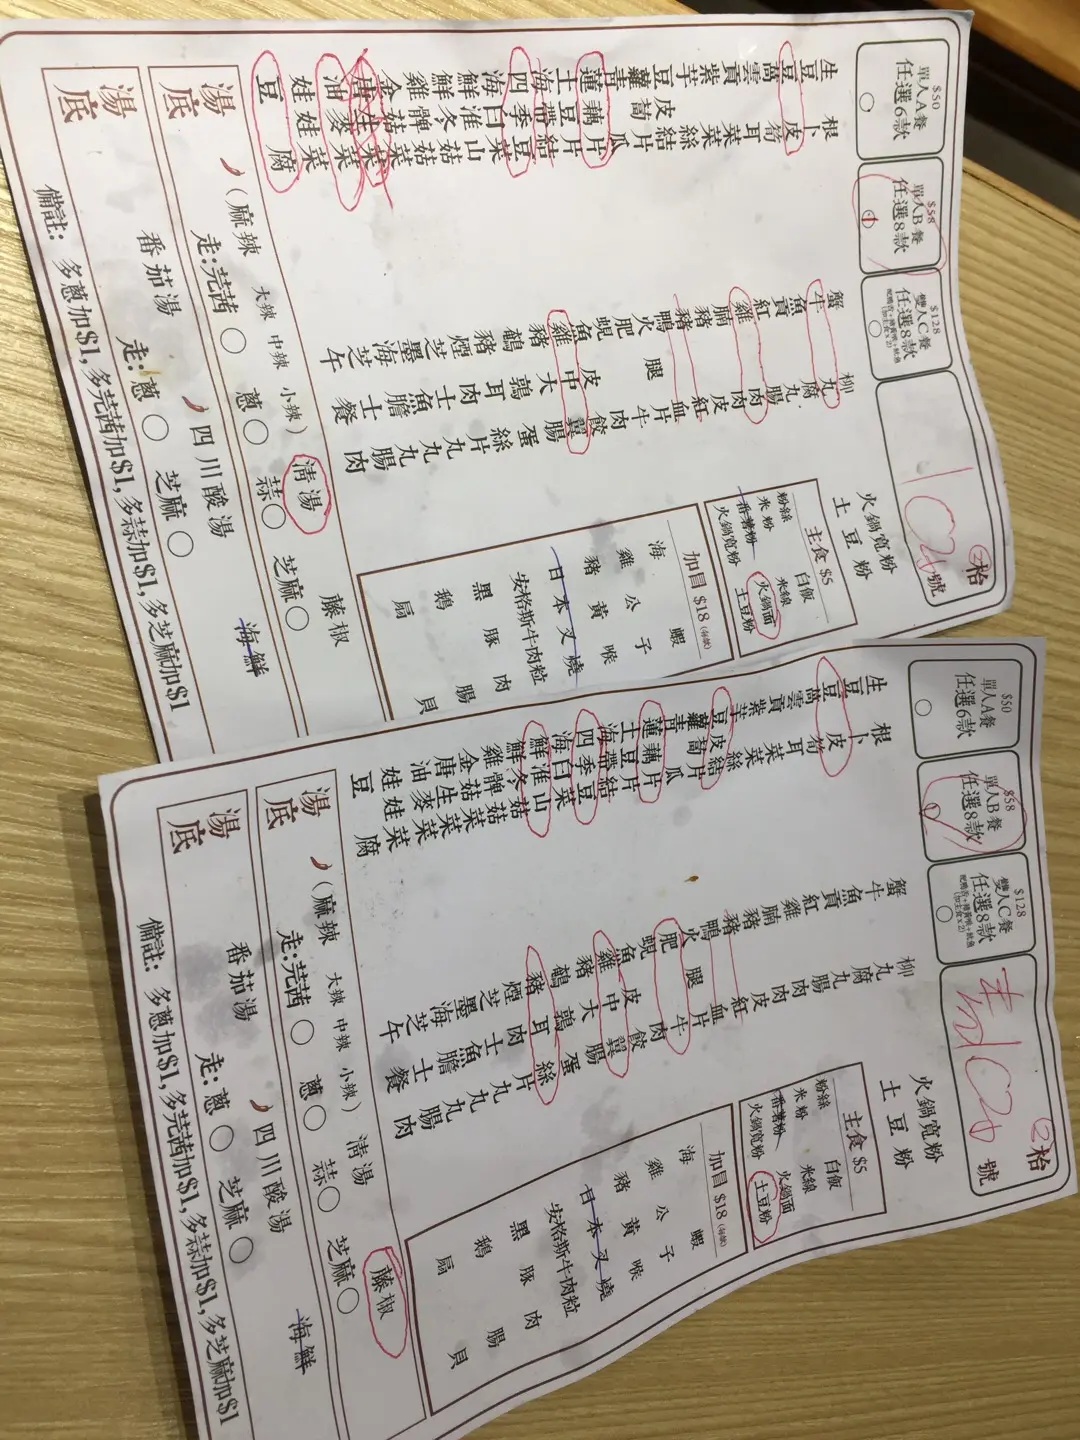 $50
單人A餐
任選6款
$58
單人B餐
任選8款
$128
雙人C餐
任選8款
枱
102號
生根
豆卜
豆皮
萵筍
雲耳
貢菜
紫菜
芋絲
豆皮結
蘿蔔片
青瓜
蓮藕片
土豆片
海帶結
四季豆
海白菜
鮮淮山
鮮冬菇
雞髀菇
金菇
唐生菜
油麥菜
娃娃菜
豆腐
蟹柳
牛丸
魚腐
貢丸
紅腸
雞肉
腩肉
豬皮
豬紅
鴨血
火腿片
肥牛
蜆肉
魚皮餃
雞中翼
豬大腸
鵪鶉蛋
豬耳絲
煙肉片
芝士丸
墨魚丸
海膽丸
芝士腸
午餐肉
火鍋寬粉
土豆粉
主食 $5
粉絲 白飯
米粉 米線
番薯粉 火鍋面
火鍋寬粉 土豆粉
加冒 $18(每款)
海蝦
雞公子
豬黃喉
日本叉燒
安格斯牛肉粒
黑豚肉
鵝腸
扇貝
湯底
(麻辣 大辣 中辣 小辣) 清湯 藤椒
走:芫茜 蔥 蒜 芝麻
湯底
番茄湯 四川酸湯 海鮮
走:蔥 芝麻
備註: 多蔥加$1,多芫茜加$1,多蒜加$1,多芝麻加$1
$50
單人A餐
任選6款
$58
單人B餐
任選8款
$128
雙人C餐
任選8款
枱
102號
生根
豆卜
豆皮
萵筍
雲耳
貢菜
紫菜
芋絲
豆皮結
蘿蔔片
青瓜
蓮藕片
土豆片
海帶結
四季豆
海白菜
鮮淮山
鮮冬菇
雞髀菇
金菇
唐生菜
油麥菜
娃娃菜
豆腐
蟹柳
牛丸
魚腐
貢丸
紅腸
雞肉
腩肉
豬皮
豬紅
鴨血
火腿片
肥牛
蜆肉
魚皮餃
雞中翼
豬大腸
鵪鶉蛋
豬耳絲
煙肉片
芝士丸
墨魚丸
海膽丸
芝士腸
午餐肉
火鍋寬粉
土豆粉
主食 $5
粉絲 白飯
米粉 米線
番薯粉 火鍋面
火鍋寬粉 土豆粉
加冒 $18(每款)
海蝦
雞公子
豬黃喉
日本叉燒
安格斯牛肉粒
黑豚肉
鵝腸
扇貝
湯底
(麻辣 大辣 中辣 小辣) 清湯 藤椒
走:芫茜 蔥 蒜 芝麻
湯底
番茄湯 四川酸湯 海鮮
走:蔥 芝麻
備註: 多蔥加$1,多芫茜加$1,多蒜加$1,多芝麻加$1